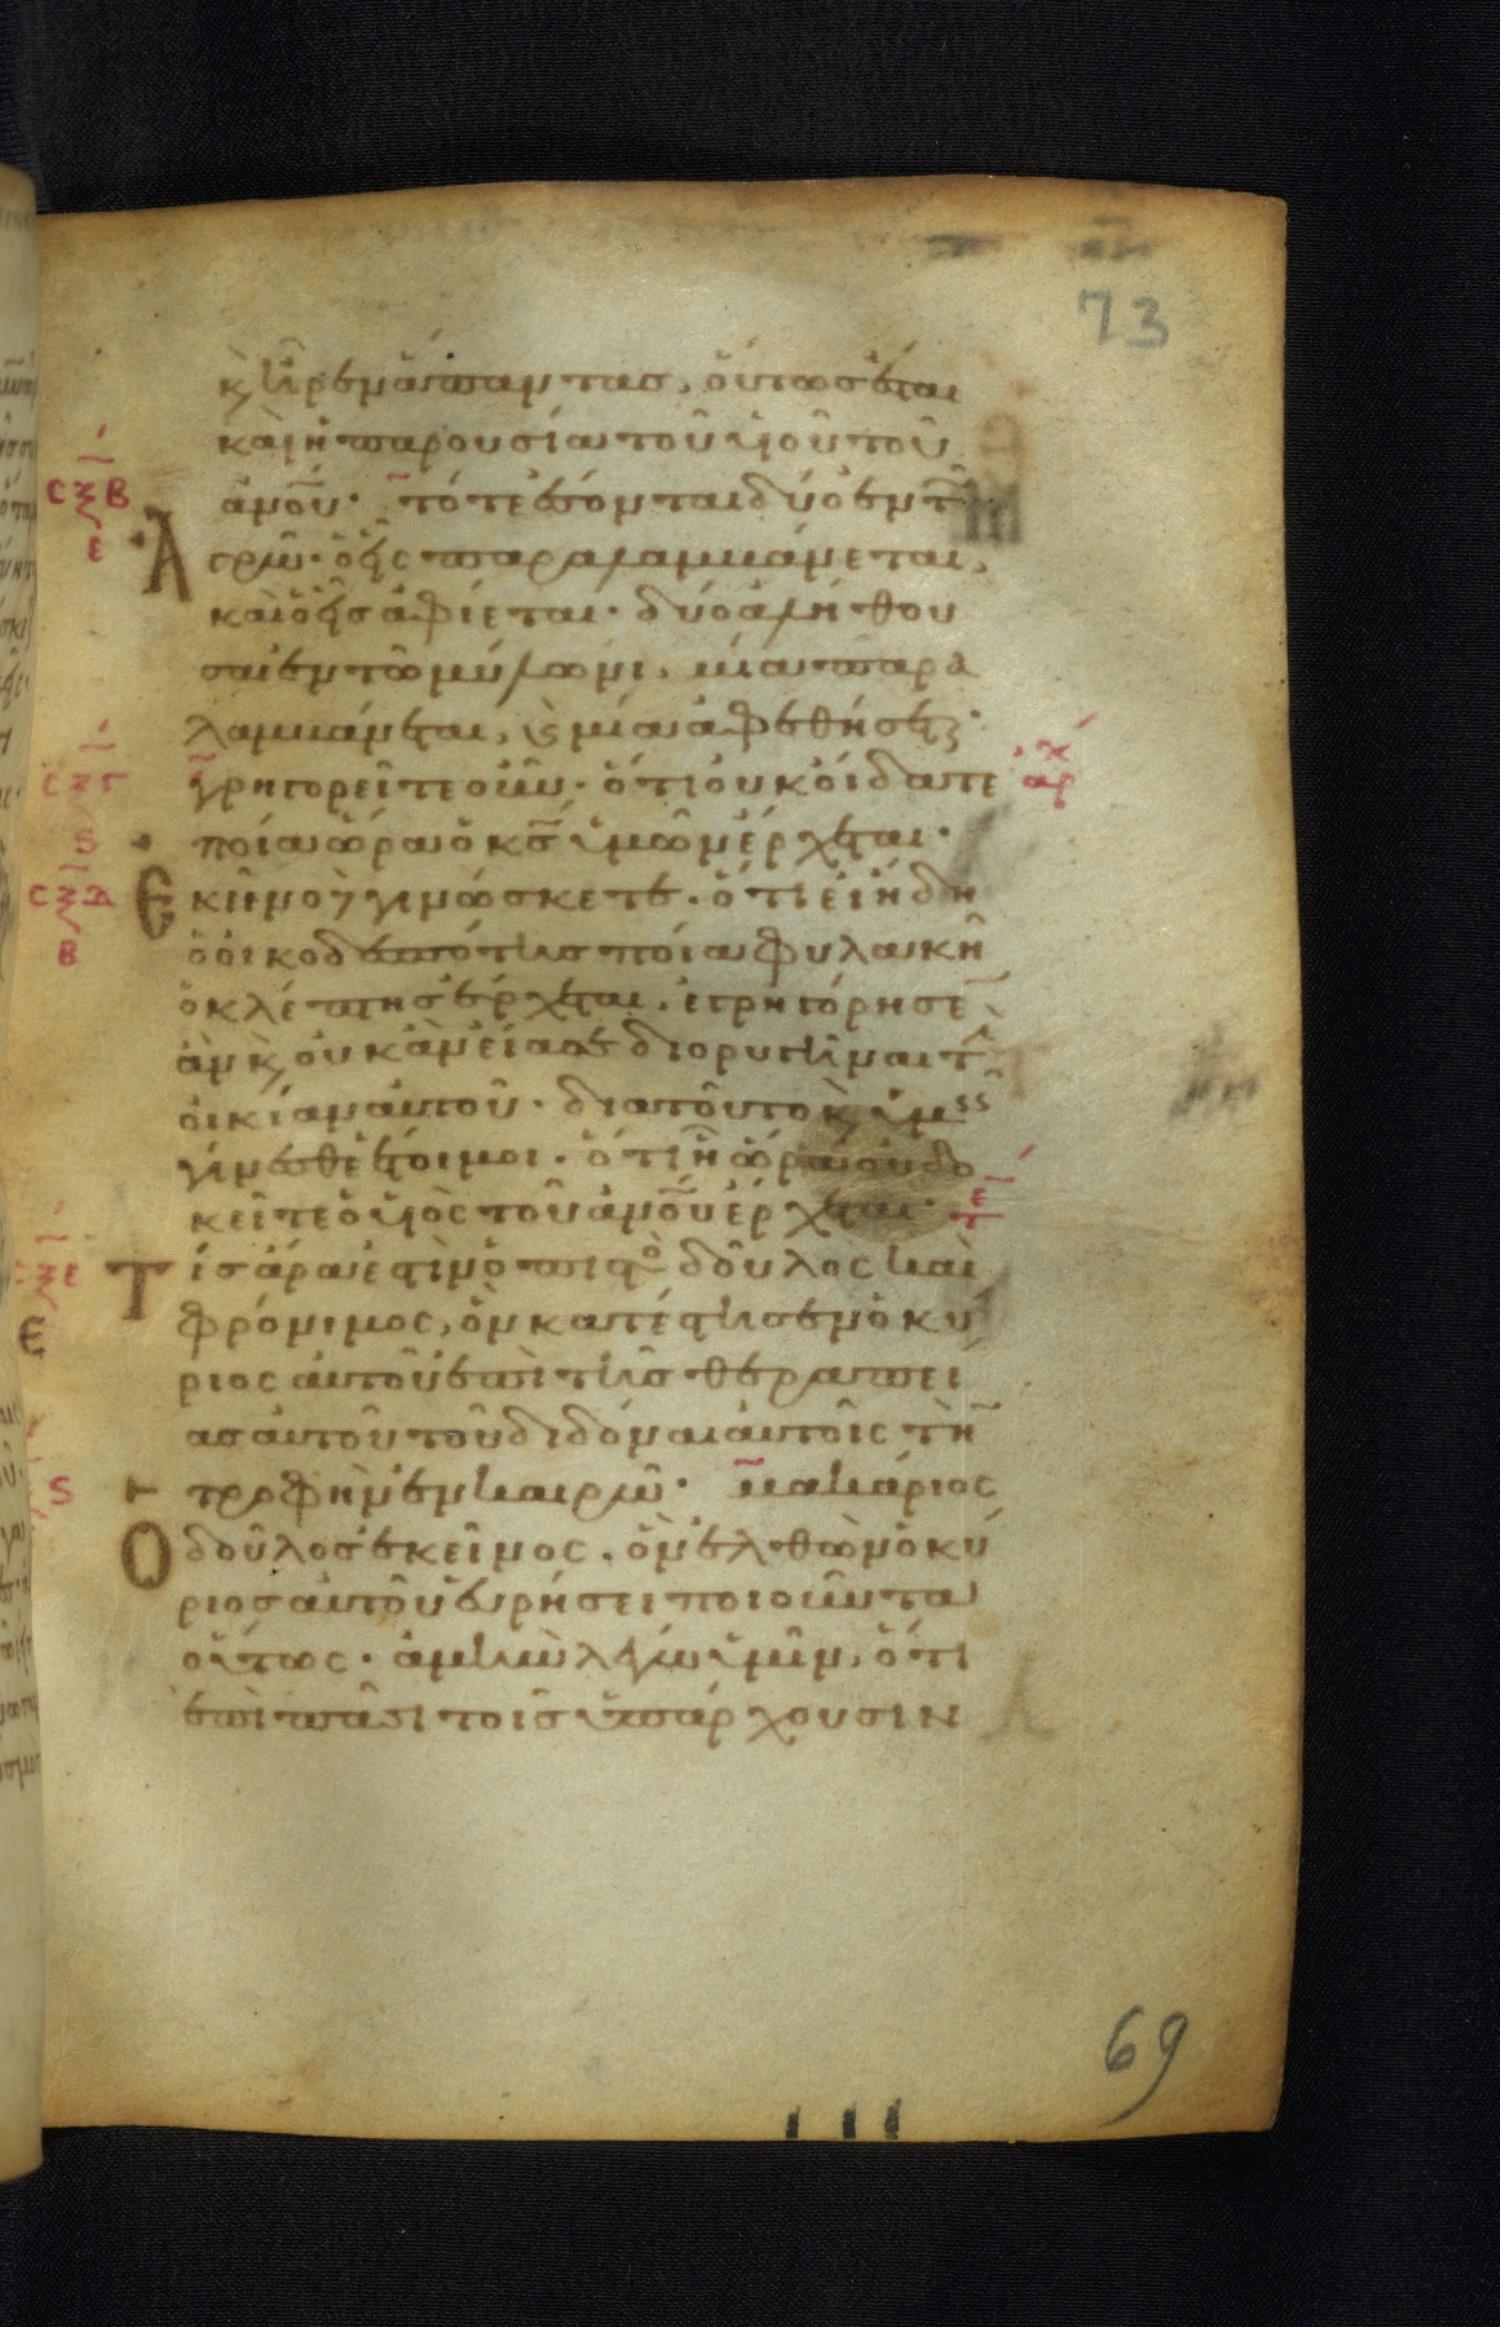 73
κ ἦρεν ἅπαντας, οὕτως ἔσται
καὶ ἡ παρουσία τοῦ υἱοῦ τοῦ
ἀνου· τότε ἔσονται δύο ἐν τ
ϹΞΒ
Ε
Ἀγρῶ· ὁ εἷς παραλαμβάνεται,
καὶ ὁ εἷς ἀφίεται· δύο ἀλήθου
σαι ἐν τῶ μύλωνι, μία παρα
λαμβάνεται, κ μία ἀφεθήσεται·
γρηγορεῖτε οὖν· ὅτι οὐκ οἴδατε
αρχ
ϹΞΓ
ποία ὥρα ὁ κς ὑμῶν ἔρχεται·
ϹΞΔ
Β
Ἐκεῖνο γινώσκετε· ὅτι εἰ ἤδη
ὁ οἰκοδεσπότης ποία φυλακῆ
ὁ κλέπτης ἔρχεται, ἐγρηγόρησε
ἂν κ οὐκ ἂν εἴασε διορυγῆναι τ
οἰκίαν αὐτοῦ· διατοῦτο κ ὑμεῖς
γίνεσθε ἕτοιμοι· ὅτι ἧ ὥρα οὐ δο
κεῖτε ὁ υἱὸς τοῦ ἀνου ἔρχεται·
Τίς ἄρα ἐστὶν ὁ πιστὸ δοῦλος καὶ
φρόνιμος, ὃν κατέστησεν ὁ κύ
ριος αὐτοῦ ἐπὶ τῆς θεραπεί
ας αὐτοῦ τοῦ διδόναι αὐτοῖς τὴ
τροφὴν ἐν καιρῶ· μακάριος
Ὁ δοῦλος ἐκεῖνος, ὃν ἐλθὼν ὁ κύ
ριος αὐτοῦ εὑρήσει ποιοῦντα
οὕτως· ἀμὴν λέγω ὑμῖν, ὅτι
ἐπὶ πᾶσι τοῖς ὑπάρχουσιν
69